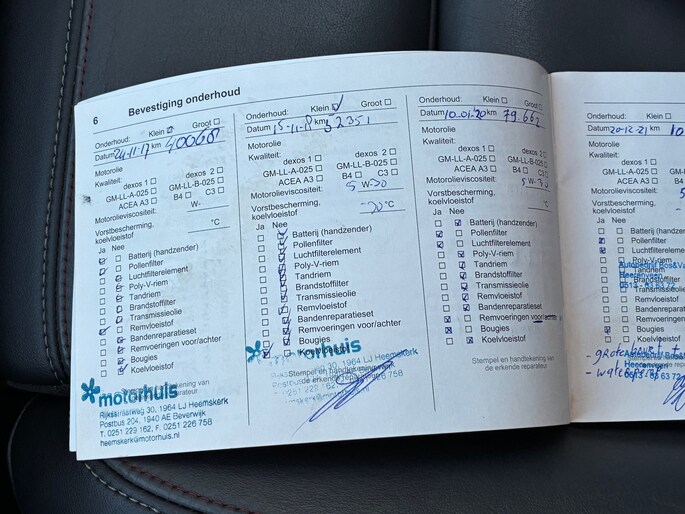 6 Bevestiging onderhoud
Onderhoud: Klein Groot
Datum 24-11-17 km
Motorolie
Kwaliteit:
dexos 1 dexos 2
GM-LL-A-025 GM-LL-B-025
ACEA A3 B4 C3
Motorolieviscositeit: W-
Vorstbescherming, koelvloeistof °C
Ja Nee
Batterij (handzender)
Pollenfilter
Luchtfilterelement
Poly-V-riem
Tandriem
Brandstoffilter
Transmissieolie
Remvloeistof
Bandenreparatieset
Remvoeringen voor/achter
Bougies
Koelvloeistof
motorhuis
Rijksstraatweg 30, 1964 LJ Heemskerk
Postbus 204, 1940 AE Beverwijk
T. 0251 229 162, F. 0251 226 758
heemskerk@motorhuis.nl
Onderhoud: Klein Groot
Datum 15-11-18 km 52351
Motorolie
Kwaliteit:
dexos 1 dexos 2
GM-LL-A-025 GM-LL-B-025
ACEA A3 B4 C3
Motorolieviscositeit: 5 W-30
Vorstbescherming, koelvloeistof -20 °C
Ja Nee
Batterij (handzender)
Pollenfilter
Luchtfilterelement
Poly-V-riem
Tandriem
Brandstoffilter
Transmissieolie
Remvloeistof
Bandenreparatieset
Remvoeringen voor/achter
Bougies
Koelvloeistof
motorhuis
Stempel en handtekening van
de erkende reparateur
Onderhoud: Klein Groot
Datum 10-01-20 km 79.662
Motorolie
Kwaliteit:
dexos 1 dexos 2
GM-LL-A-025 GM-LL-B-025
ACEA A3 B4 C3
Motorolieviscositeit: 5 W-30
Vorstbescherming, koelvloeistof °C
Ja Nee
Batterij (handzender)
Pollenfilter
Luchtfilterelement
Poly-V-riem
Tandriem
Brandstoffilter
Transmissieolie
Remvloeistof
Bandenreparatieset
Remvoeringen voor/achter
Bougies
Koelvloeistof
Stempel en handtekening van
de erkende reparateur
Onderhoud: Klein
Datum 20-12-21 km 10
Motorolie
Kwaliteit:
dexos 1
GM-LL-A-025
ACEA A3
Motorolieviscositeit:
Vorstbescherming,
koelvloeistof
Ja Nee
Batterij (handzender)
Pollenfilter
Luchtfilterelement
Tandriem
Brandstoffilter
Transmissieolie
Remvloeistof
Bandenreparatieset
Remvoeringen
Bougies
Heerenveen